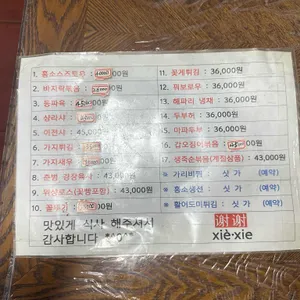 1. 홍소스즈토우 : 00원
2. 바지락볶음 : 00원
3. 동파육 : 00원
4. 삼락샤 : 00원
5. 이젠샤 : 45,000
6. 가지튀김 : 00원
7. 가지새우 : 00원
8. 춘병 경장육사 : 43,000원
9. 위샹로스(꽃빵포함) : 43,000원
10. 꽃 : 00원
11. 꽃게튀김 : 36,000원
12. 꿔보로우 : 36,000원
13. 해파리 냉채 : 36,000원
14. 두부어 : 36,000원
15. 마파두부 : 36,000원
16. 갑오징어볶음 : 00원
17. 냉죽순볶음(계절상품) : 43,000원
※ 가리비찜 : 싯 가 (예약)
※ 홍소생선 : 싯 가 (예약)
※ 활어도미튀김 : 싯 가 (예약)
맛있게 식사 해주셔서
감사합니다 *^0^*
谢 谢
xiè·xie